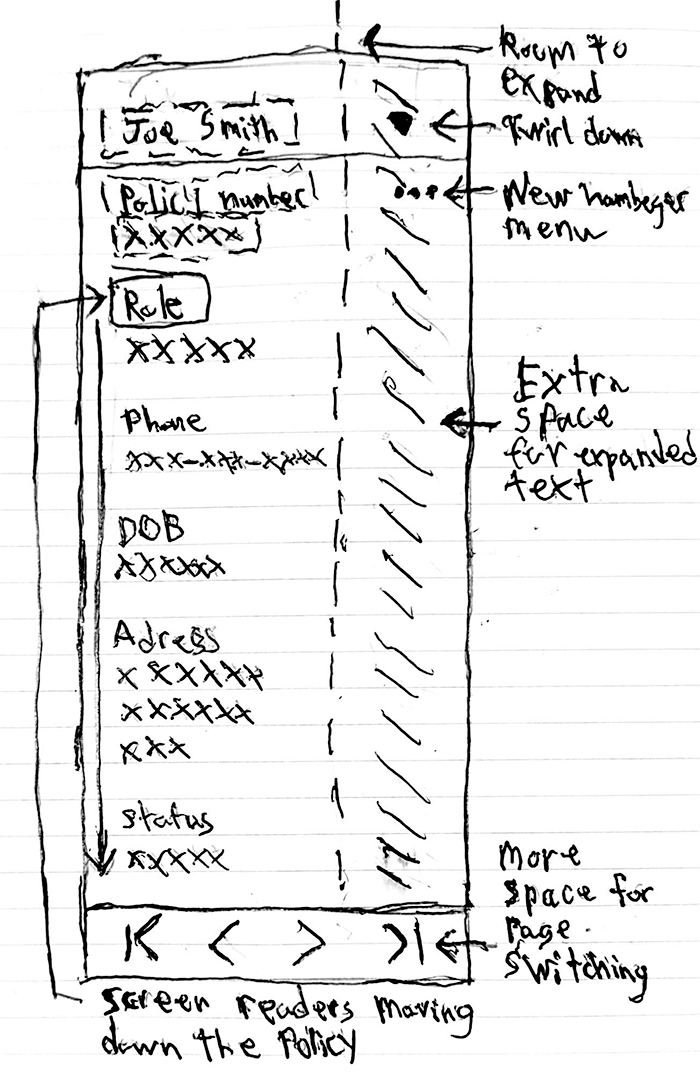 Room to
expand
Joe Smith
Twirl down
Policy number
New hambeger
menu
XXXXX
Role
XXXXX
Extra
space
for expanded
text
Phone
XXX-XXX-XXXX
DOB
XXXXXX
Adress
XXXXXXX
XXXXXXX
XXX
Status
XXXXX
More
space for
page
switching
K < > >|
Screen readers moving
down the Policy